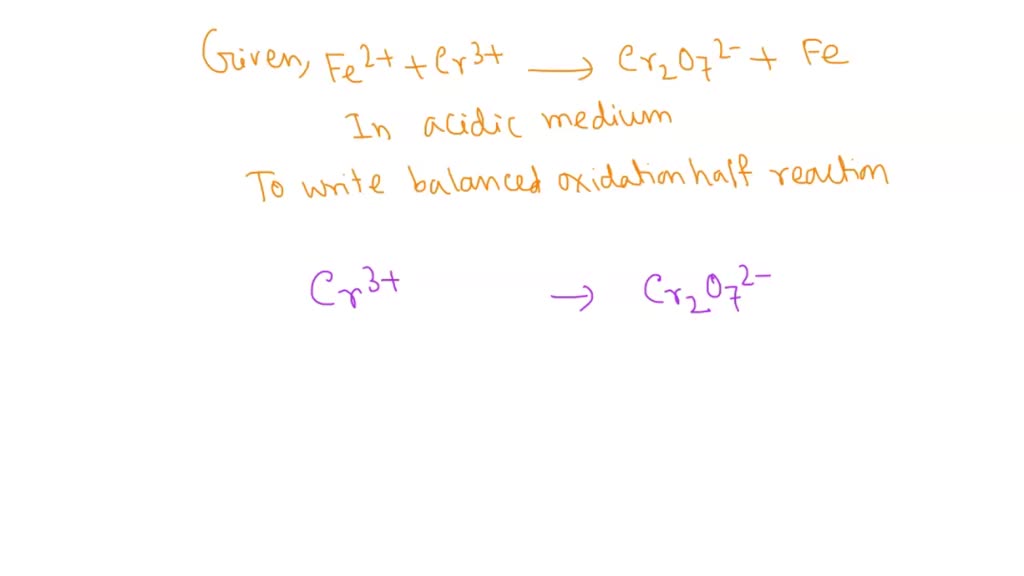 Given, Fe²⁺ + Cr³⁺ → Cr₂O₇²⁻ + Fe
In acidic medium
To write balanced oxidation half reaction
Cr³⁺ → Cr₂O₇²⁻